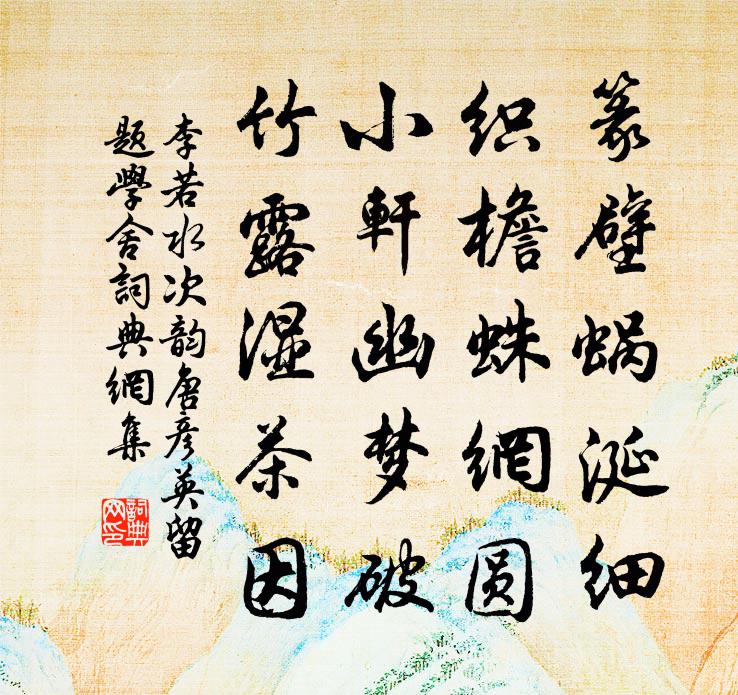 篆壁蜗涎细
织檐蛛網圆
小軒幽梦破
竹露湿茶因
李若水次韵唐彦英留
题學舍詞典網集
詞典网印